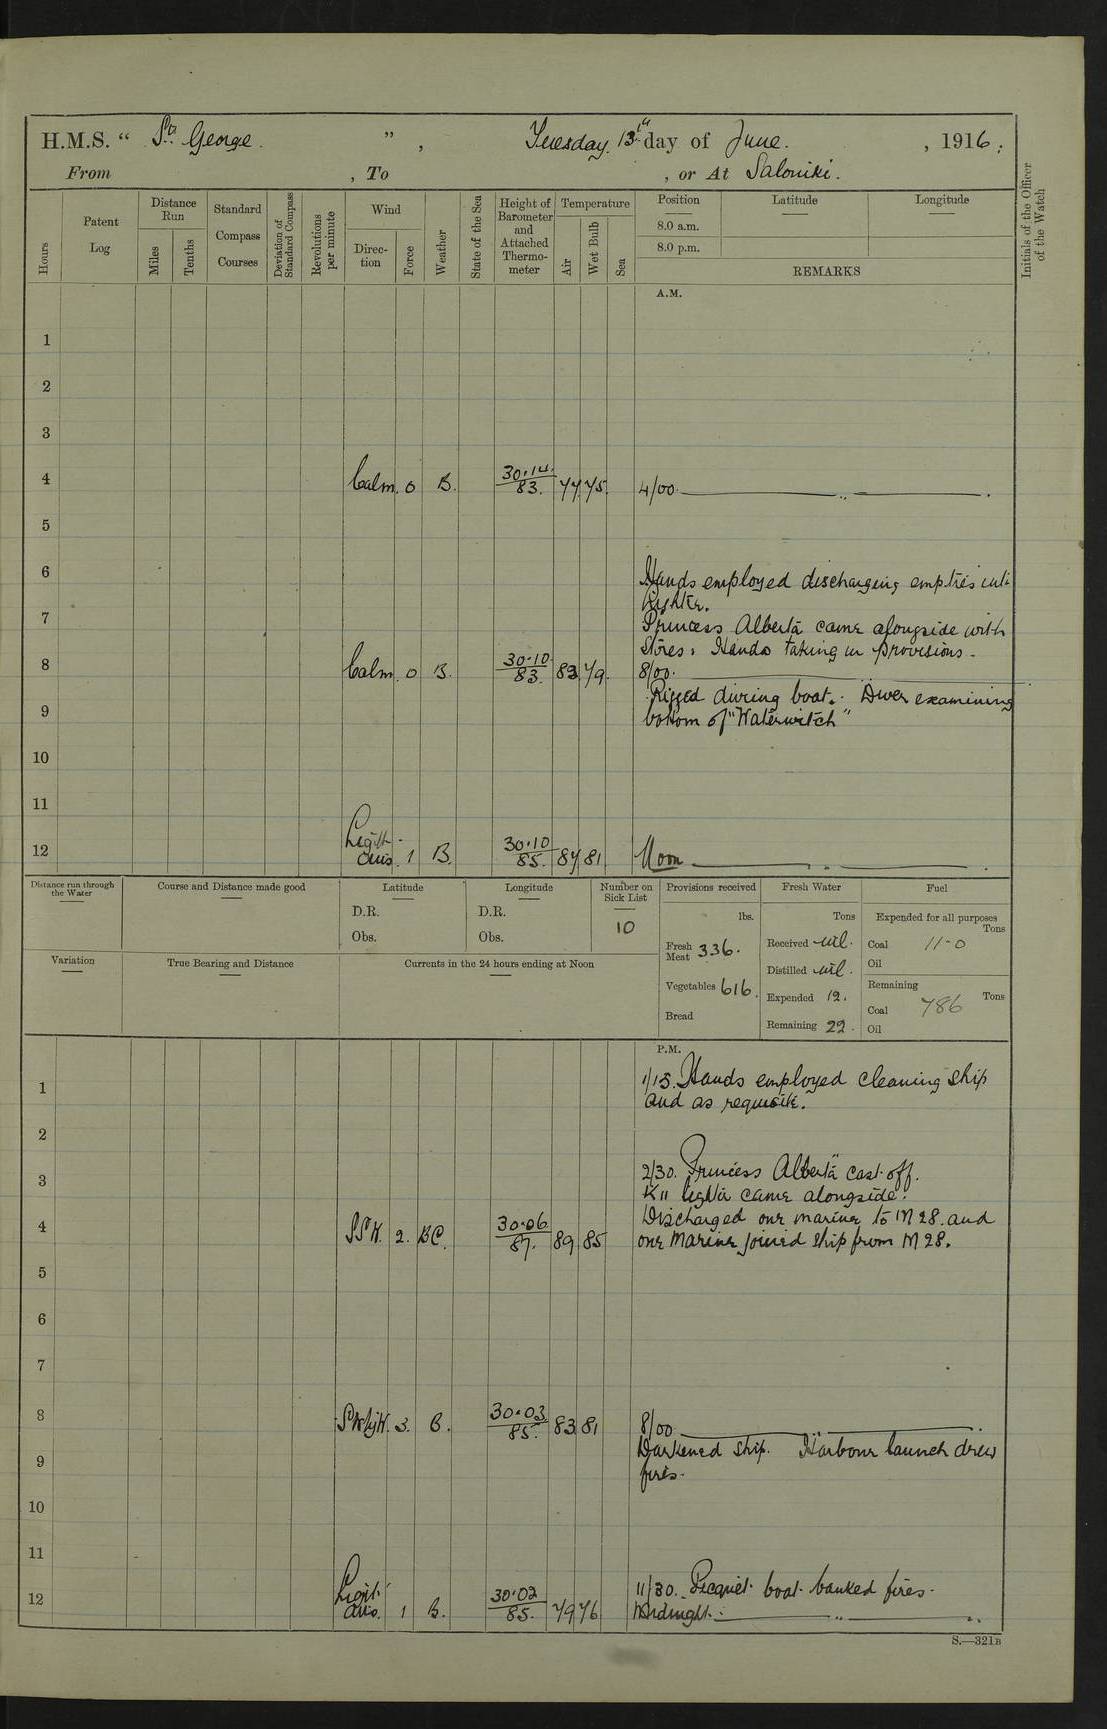 H.M.S. " St. George. ", Tuesday. 13th day of June. , 1916.
From , To , or At Saloniki.
Hours
Patent Log
Distance Run
Miles
Tenths
Standard Compass Courses
Deviation of Standard Compass
Revolutions per minute
Wind
Direction
Force
Weather
State of the Sea
Height of Barometer and Attached Thermometer
Temperature
Air
Wet Bulb
Sea
Position
Latitude
Longitude
8.0 a.m.
8.0 p.m.
REMARKS
Initials of the Officer of the Watch
A.M.
1
2
3
4 Calm. 0 B. 30.14. 83. 77 75. 4/00 „ .
5
6 Hands employed discharging empties into
lighter.
7 Princess Alberta came alongside with
Stores. Hands taking in provisions.
8 Calm. 0 B. 30.10. 83. 83 79. 8/00.
Rigged diving boat. Diver examining
9 bottom of "Waterwitch"
10
11
12 Light airs. 1 B. 30.10 85. 84 81 Noon „ .
Distance run through the Water
Course and Distance made good
Latitude
D.R.
Obs.
Longitude
D.R.
Obs.
Number on Sick List
10
Provisions received
lbs.
Fresh Meat 336.
Vegetables 616.
Bread
Fresh Water
Tons
Received nil.
Distilled nil.
Expended 12.
Remaining 22.
Fuel
Expended for all purposes
Tons
Coal 11-0
Oil
Remaining
Tons
Coal 786
Oil
Variation
True Bearing and Distance
Currents in the 24 hours ending at Noon
P.M.
1 1/15. Hands employed cleaning ship
and as requisite.
2
3 2/30. "Princess Alberta" cast off.
K11 lighter came alongside.
4 SSW. 2. BC. 30.06 87. 89 85 Discharged one marine to M 28. and
one Marine joined ship from M 28.
5
6
7
8 SWbyW. 3. B. 30.03. 85. 83 81 8/00 „ .
Darkened ship. Harbour launch drew
9 fires.
10
11
12 Light airs. 1 B. 30.02 85. 79 76 11/30. Picquet boat banked fires.
Midnight. „
S.—321B